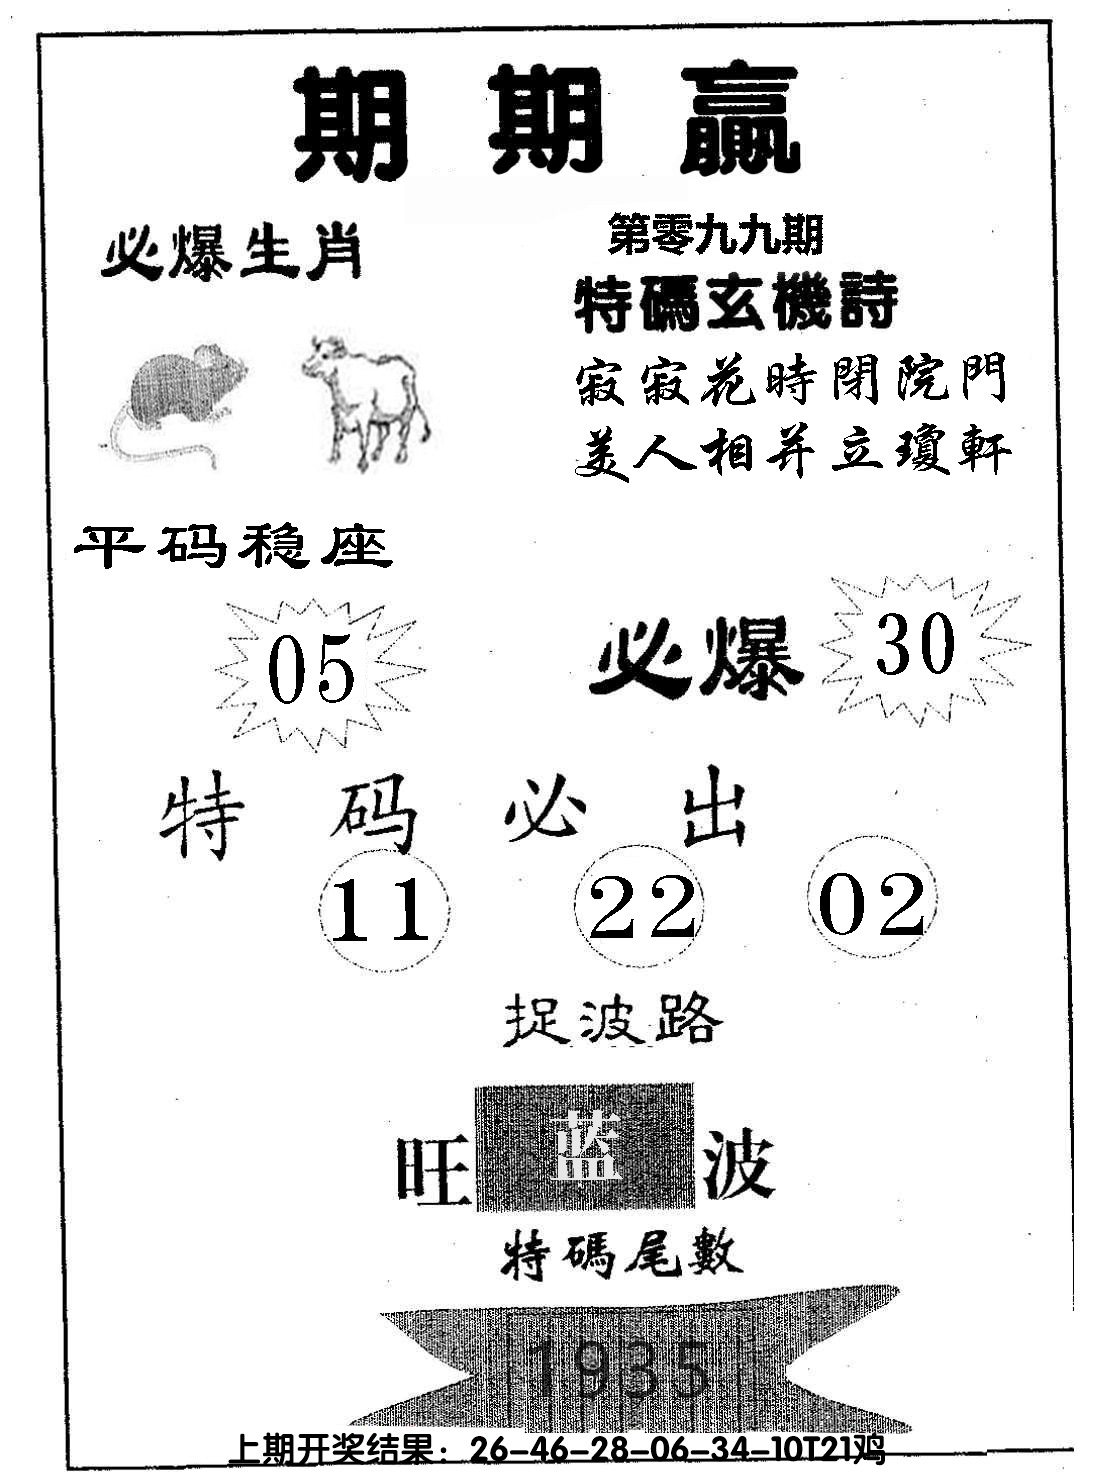 期期赢
必爆生肖
第零九九期
特碼玄機詩
寂寂花時閉院門
美人相并立瓊軒
平码稳座
05
必爆
30
特码必出
11 22 02
捉波路
旺蓝波
特碼尾數
1935
上期开奖结果：26-46-28-06-34-10T21鸡